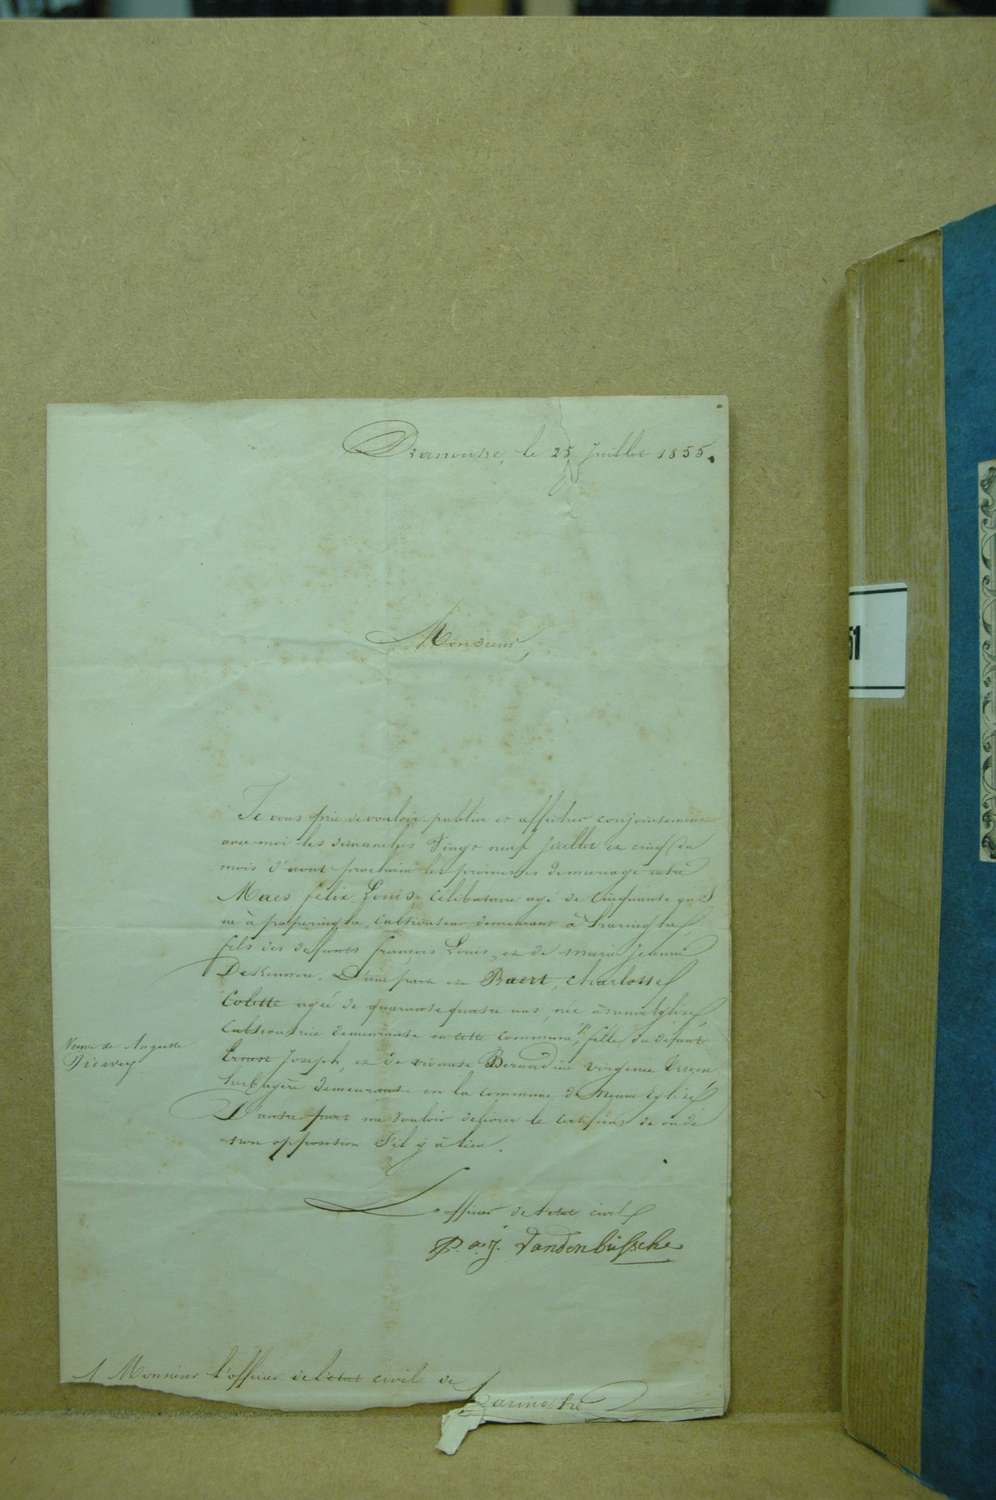 Dranoutre, le 25 Juillet 1855.
Monsieur,
Je vous prie de vouloir publier et afficher conjointement
avec moi les dimanches Vingt neuf Juillet et cinq du
mois d'aout prochain les promesses de mariage entre
Maes félix Louis Celibataire agé de Cinquante
né à poperinghe, Cultivateur demeurant à
fils des defunts francois Louis, et de marie Jeanne
D'une part et Baert, Charlotte
Colette agée de quarante quatre ans, née à neuveglise,
Cultivatrice demeurante en cette commune, fille du defunt
Veuve de Auguste
Joseph, et de vivante Bernardine virginie
demeurante en la commune de Neuve Eglise
D'autre part me vouloir delivrer le Certificat de ou de
non opposition S'il y à lieu.
L'officier de l'etat civil
P. a. J. Vandenbussche
A Monsieur l'officier de l'etat civil de
51